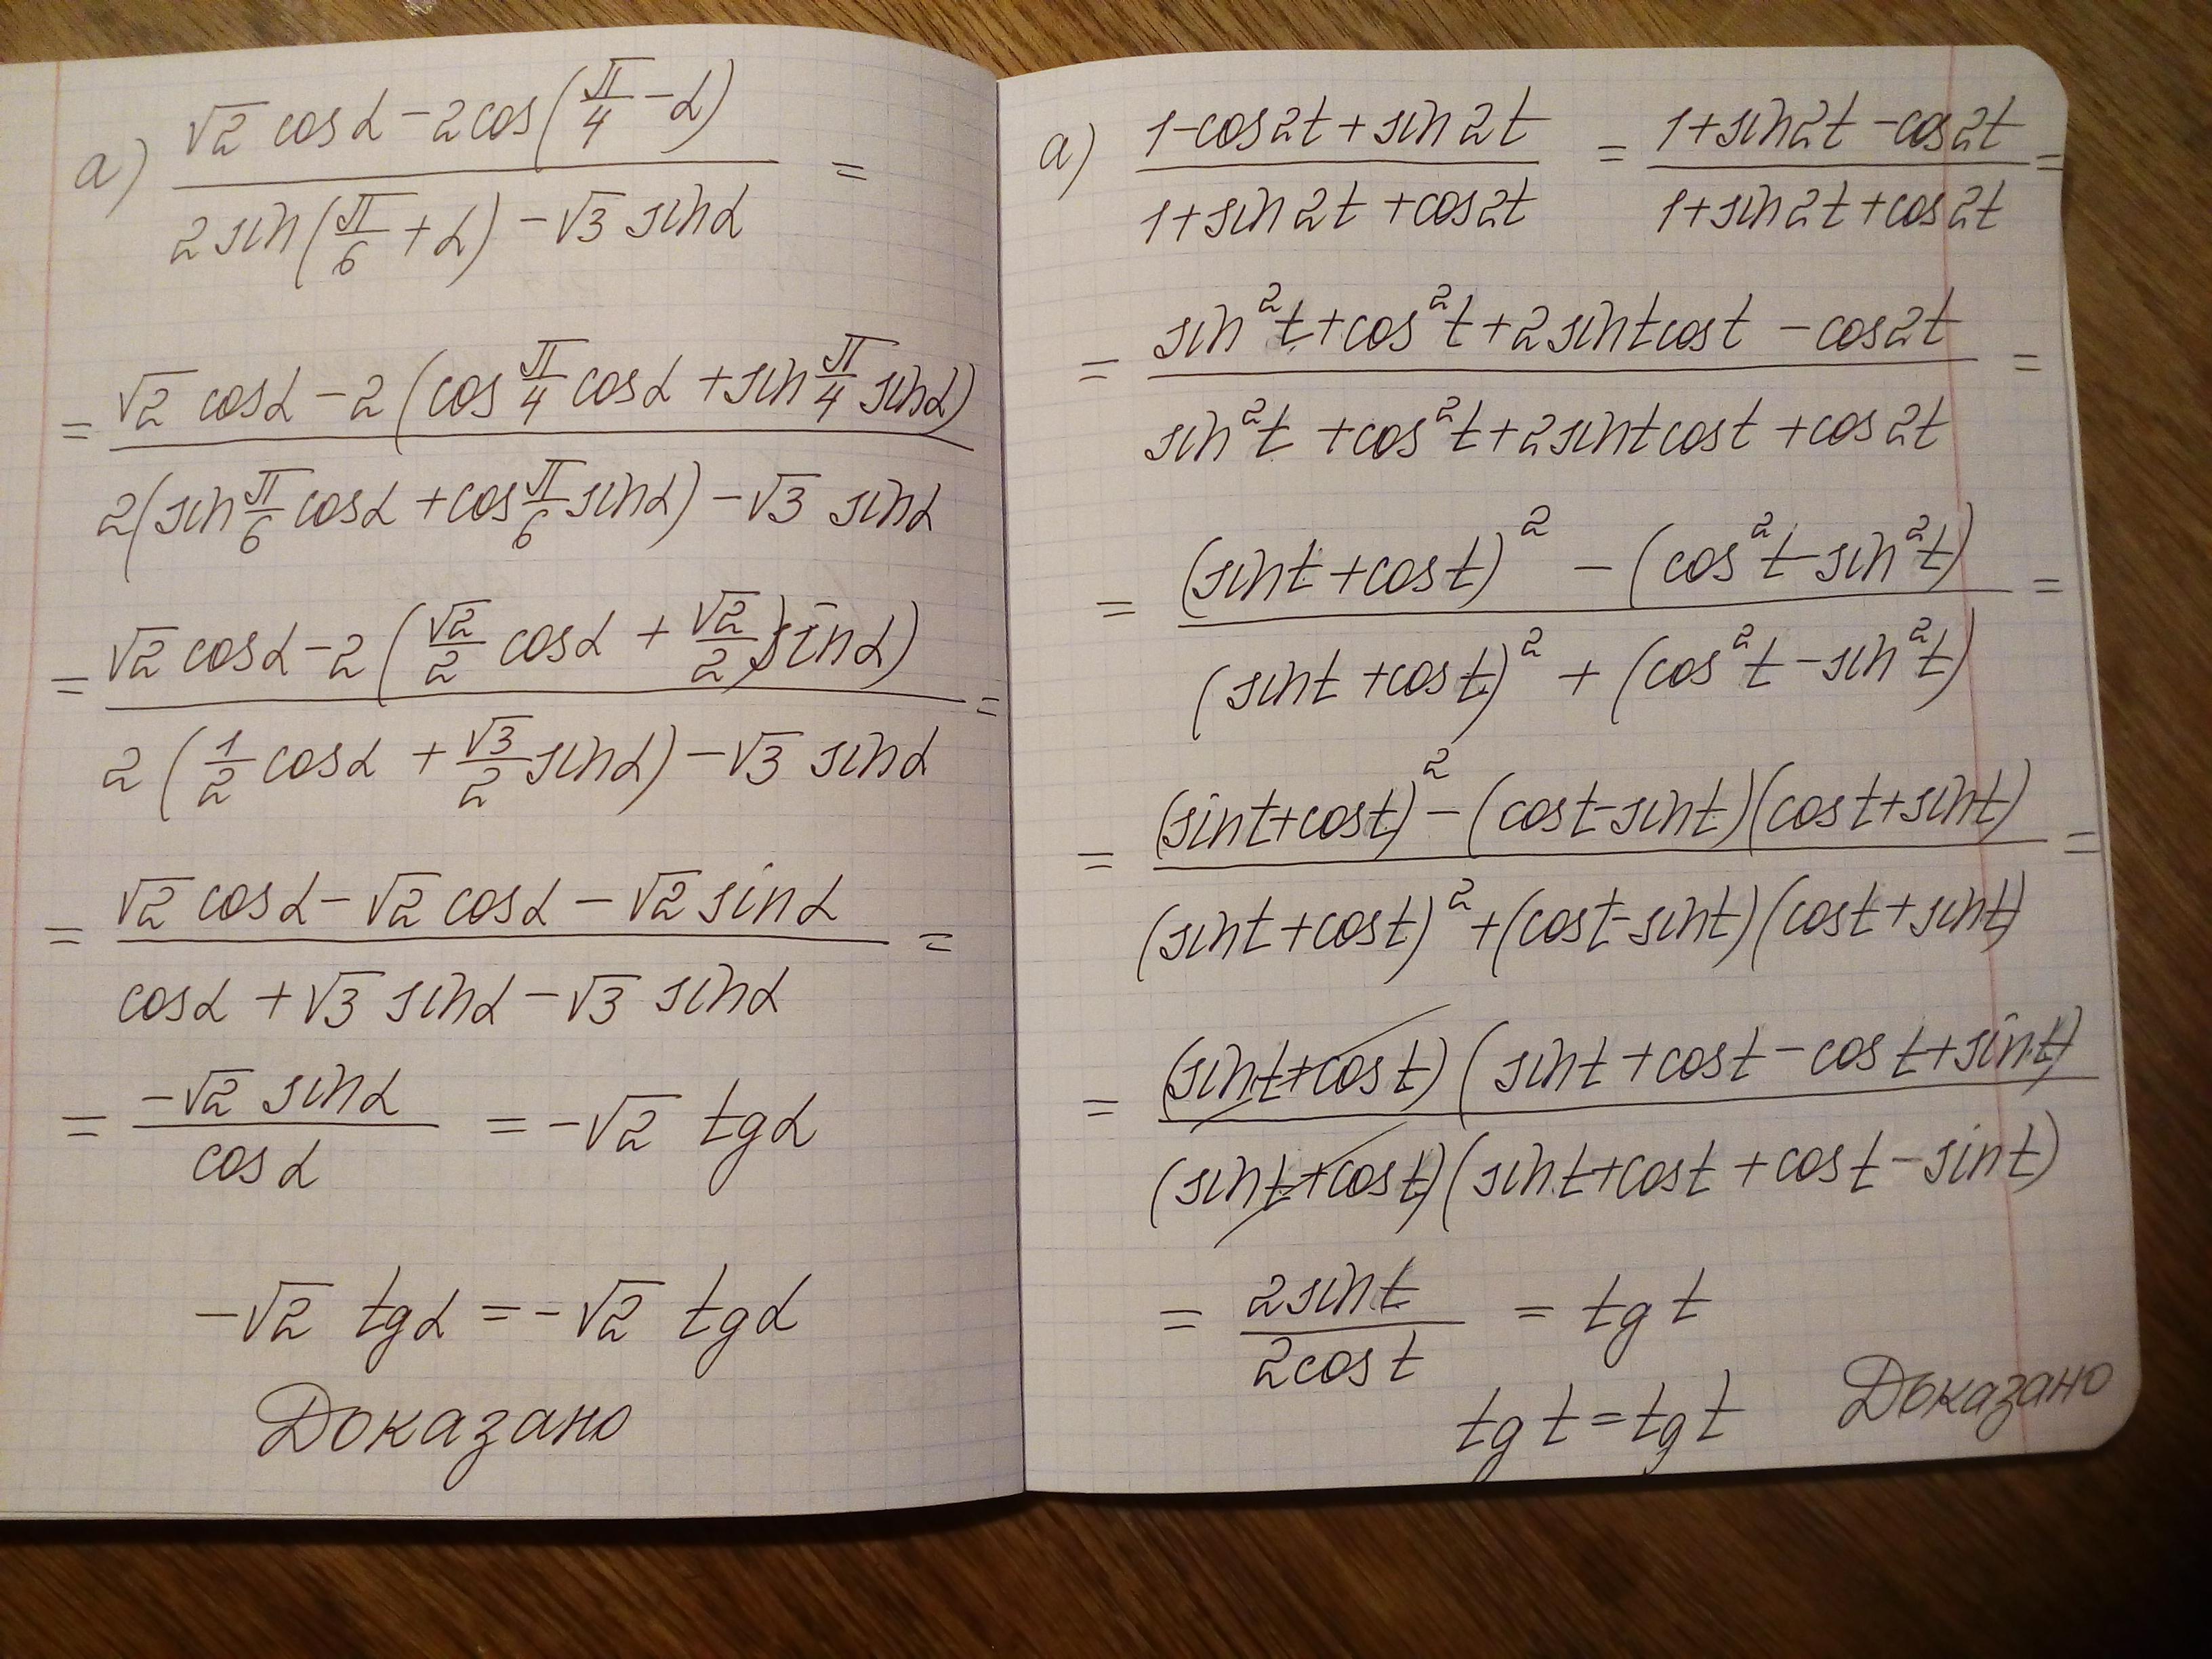 а) (√2 cosα − 2cos(π/4 − α)) / (2sin(π/6 + α) − √3 sinα) =
= (√2 cosα − 2(cos π/4 cosα + sin π/4 sinα)) / (2(sin π/6 cosα + cos π/6 sinα) − √3 sinα)
= (√2 cosα − 2(√2/2 cosα + √2/2 sinα)) / (2(1/2 cosα + √3/2 sinα) − √3 sinα) =
= (√2 cosα − √2 cosα − √2 sinα) / (cosα + √3 sinα − √3 sinα) =
= (−√2 sinα) / cosα = −√2 tgα
−√2 tgα = −√2 tgα
Доказано
а) (1−cos2t+sin2t) / (1+sin2t+cos2t) = (1+sin2t−cos2t) / (1+sin2t+cos2t) =
= (sin²t+cos²t+2sintcost −cos2t) / (sin²t+cos²t+2sintcost+cos2t) =
= ((sint+cost)² − (cos²t−sin²t)) / ((sint+cost)² + (cos²t−sin²t)) =
= ((sint+cost)² − (cost−sint)(cost+sint)) / ((sint+cost)² + (cost−sint)(cost+sint)) =
= ((sint+cost)(sint+cost−cost+sint)) / ((sint+cost)(sint+cost+cost−sint))
= 2sint / 2cost = tg t
tg t = tg t
Доказано